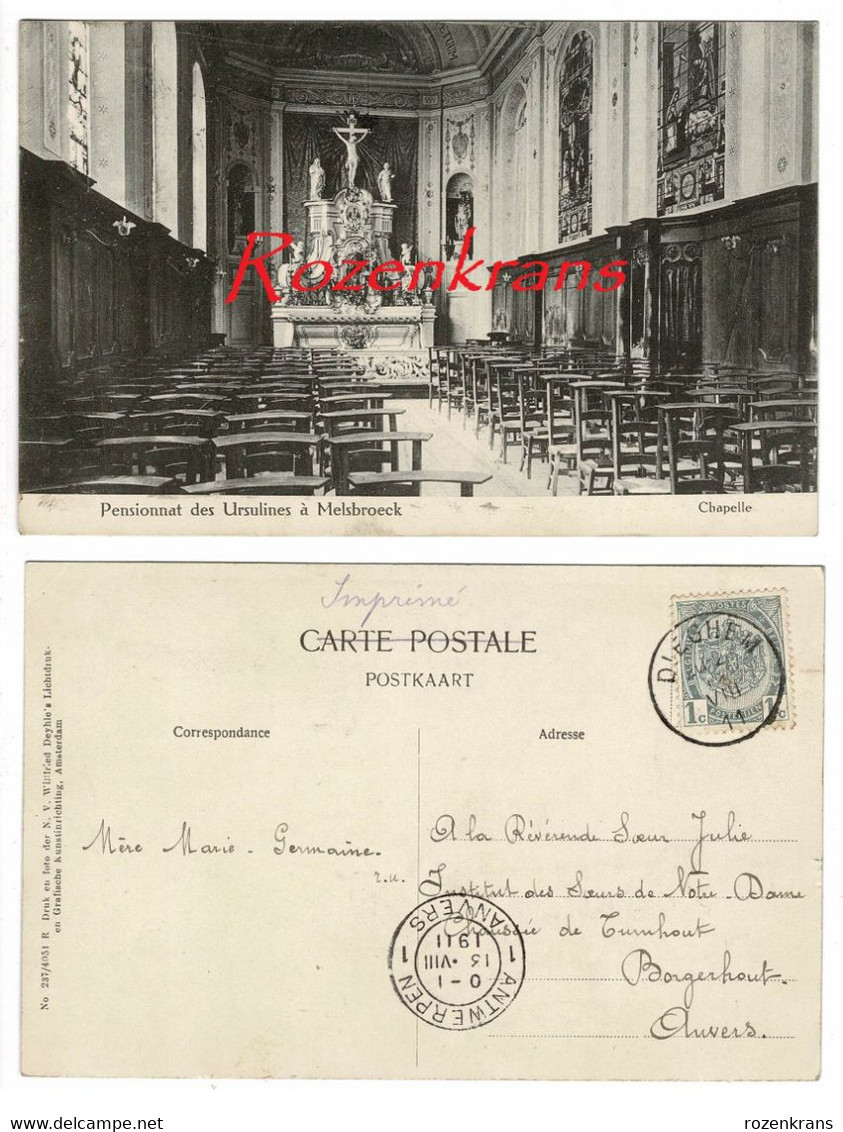 Rozenkrans
Pensionnat des Ursulines à Melsbroeck
Chapelle
Imprimé
CARTE POSTALE
POSTKAART
Correspondance
Adresse
DIEGHEM
VIII
11
1c 1c
POSTES
No 237/4051 R Druk en foto der N. V. Wilfried Deyhle's Lichtdruk-
en Grafische Kunstinrichting, Amsterdam
Mère Marie-Germaine.
r.u.
A la Révérende Sœur Julie
Institut des Sœurs de Notre-Dame
Chaussée de Turnhout
Borgerhout.
Anvers.
1 ANTWERPEN 1 ANVERS
0-1
15·VIII
1911
delcampe.net
rozenkrans